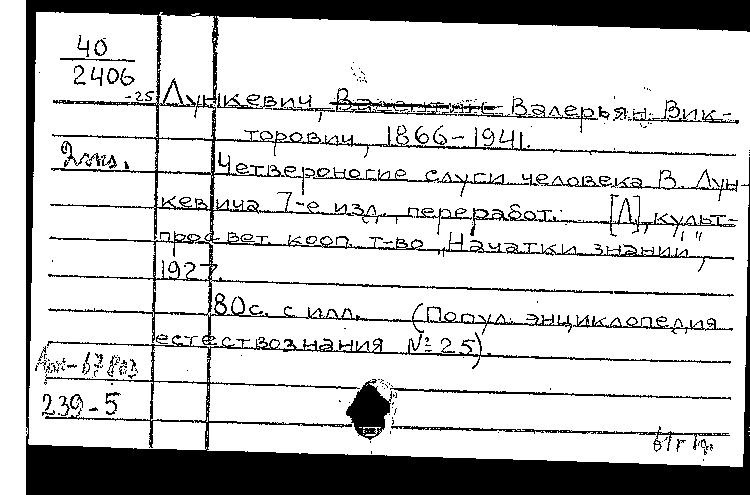 40
2406
-25
Лункевич, Валентин Валерьян. Вик-
торович, 1866-1941.
2 экз.
Четвероногие слуги человека В. Лун
кевича 7-е изд., переработ. [Л], культ-
просвет. кооп. т-во „Начатки знаний",
1927.
80с. с илл. (Попул. энциклопедия
естествознания № 25).
239-5